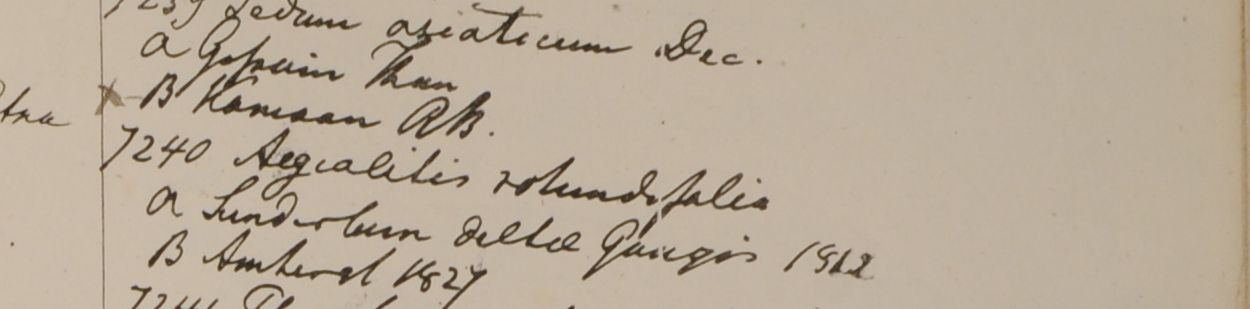 7239 Sedum asiaticum Dec.
a Gossain Than
B Kamaon RB.
7240 Aegialitis rotundifolia
a Sunderbun deltae Gangis 1812
B Amherst 1827
7241